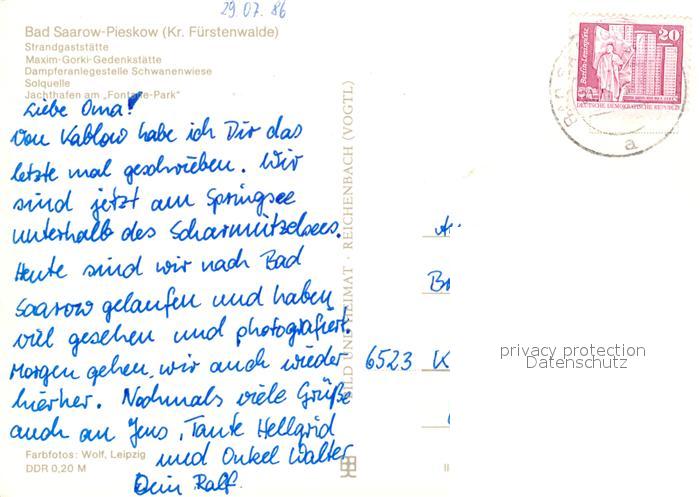 29.07.86
Bad Saarow-Pieskow (Kr. Fürstenwalde)
Strandgaststätte
Maxim-Gorki-Gedenkstätte
Dampferanlegestelle Schwanenwiese
Solquelle
Jachthafen am „Fontane-Park"
Liebe Oma!
Von Kablow habe ich Dir das
letzte mal geschrieben. Wir
sind jetzt am Springsee
unterhalb des Scharmützelsees.
Heute sind wir nach Bad
Saarow gelaufen und haben
viel gesehen und photografiert.
Morgen gehen wir auch wieder
hierher. Nochmals viele Grüße
auch an Jens, Tante Hellgrid
und Onkel Walter
Dein Ralf.
Farbfotos: Wolf, Leipzig
DDR 0,20 M
BILD UND HEIMAT · REICHENBACH (VOGTL)
6523 K
20
Berlin-Leninplatz
DEUTSCHE DEMOKRATISCHE REPUBLIK
a
privacy protection
Datenschutz